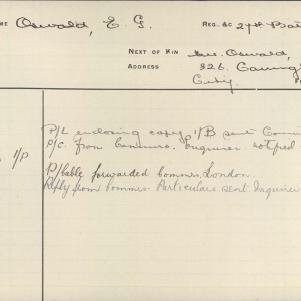 ME Oswald, E. G. REG. &C 24th Bat
NEXT OF KIN Mrs. Oswald,
ADDRESS 326.
City.
P/L enclosing copy I/B sent Commrs
P/C. from Commrs. Enquirer notified
I/P
P/Cable forwarded Commrs, London.
Reply from Commrs. Particulars sent Inquirer